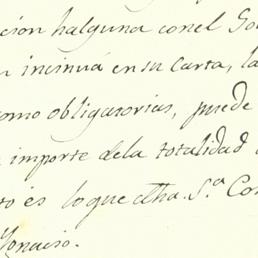 cion halguna conel Go
n incinuá en su Carta, la
como obligatorias, puede
importe dela totalidad
to és lo que dha. S.ª Con
Ygnacio.